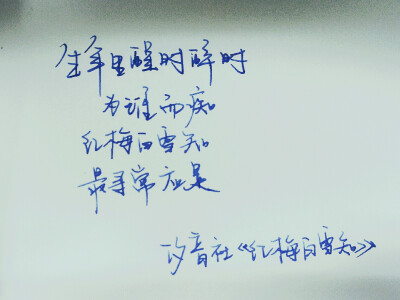 生年里醒时醉时
为谁而痴
红梅白雪知
最寻常应是
汐音社《红梅白雪知》